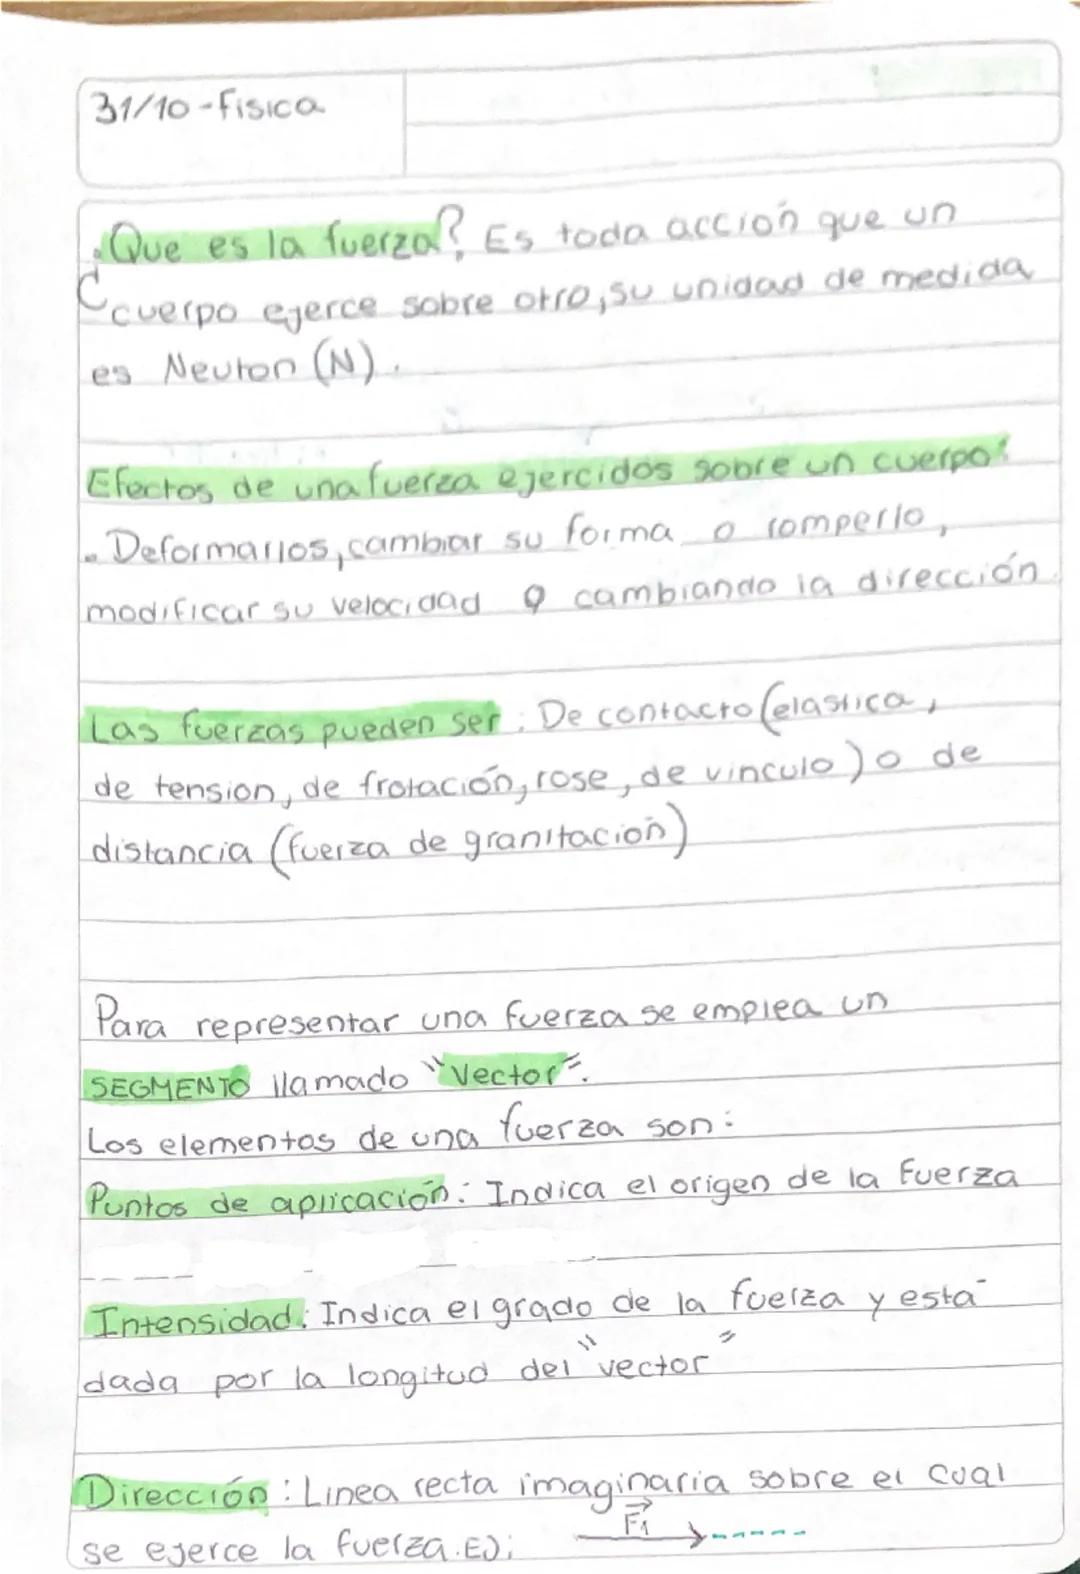 31/10-Fisica
¿Que es la fuerza? Es toda acción que un
cuerpo ejerce sobre otro, su unidad de medida
es Neuton (N).
Efectos de una fuerza ejercidos sobre un cuerpo:
. Deformarlos, cambiar su forma o romperlo,
modificar su velocidad o cambiando la dirección.
Las fuerzas pueden ser: De contacto (elastica,
de tension, de frotación, rose, de vinculo) o de
distancia (fuerza de granitación)
Para representar una fuerza se emplea un
SEGMENTO llamado "Vector".
Los elementos de una fuerza son:
Puntos de aplicación: Indica el origen de la Fuerza
Intensidad: Indica el grado de la fuerza y esta
dada por la longitud del "vector"
Dirección: Linea recta imaginaria sobre el cual
se ejerce la fuerza. EJ: F1